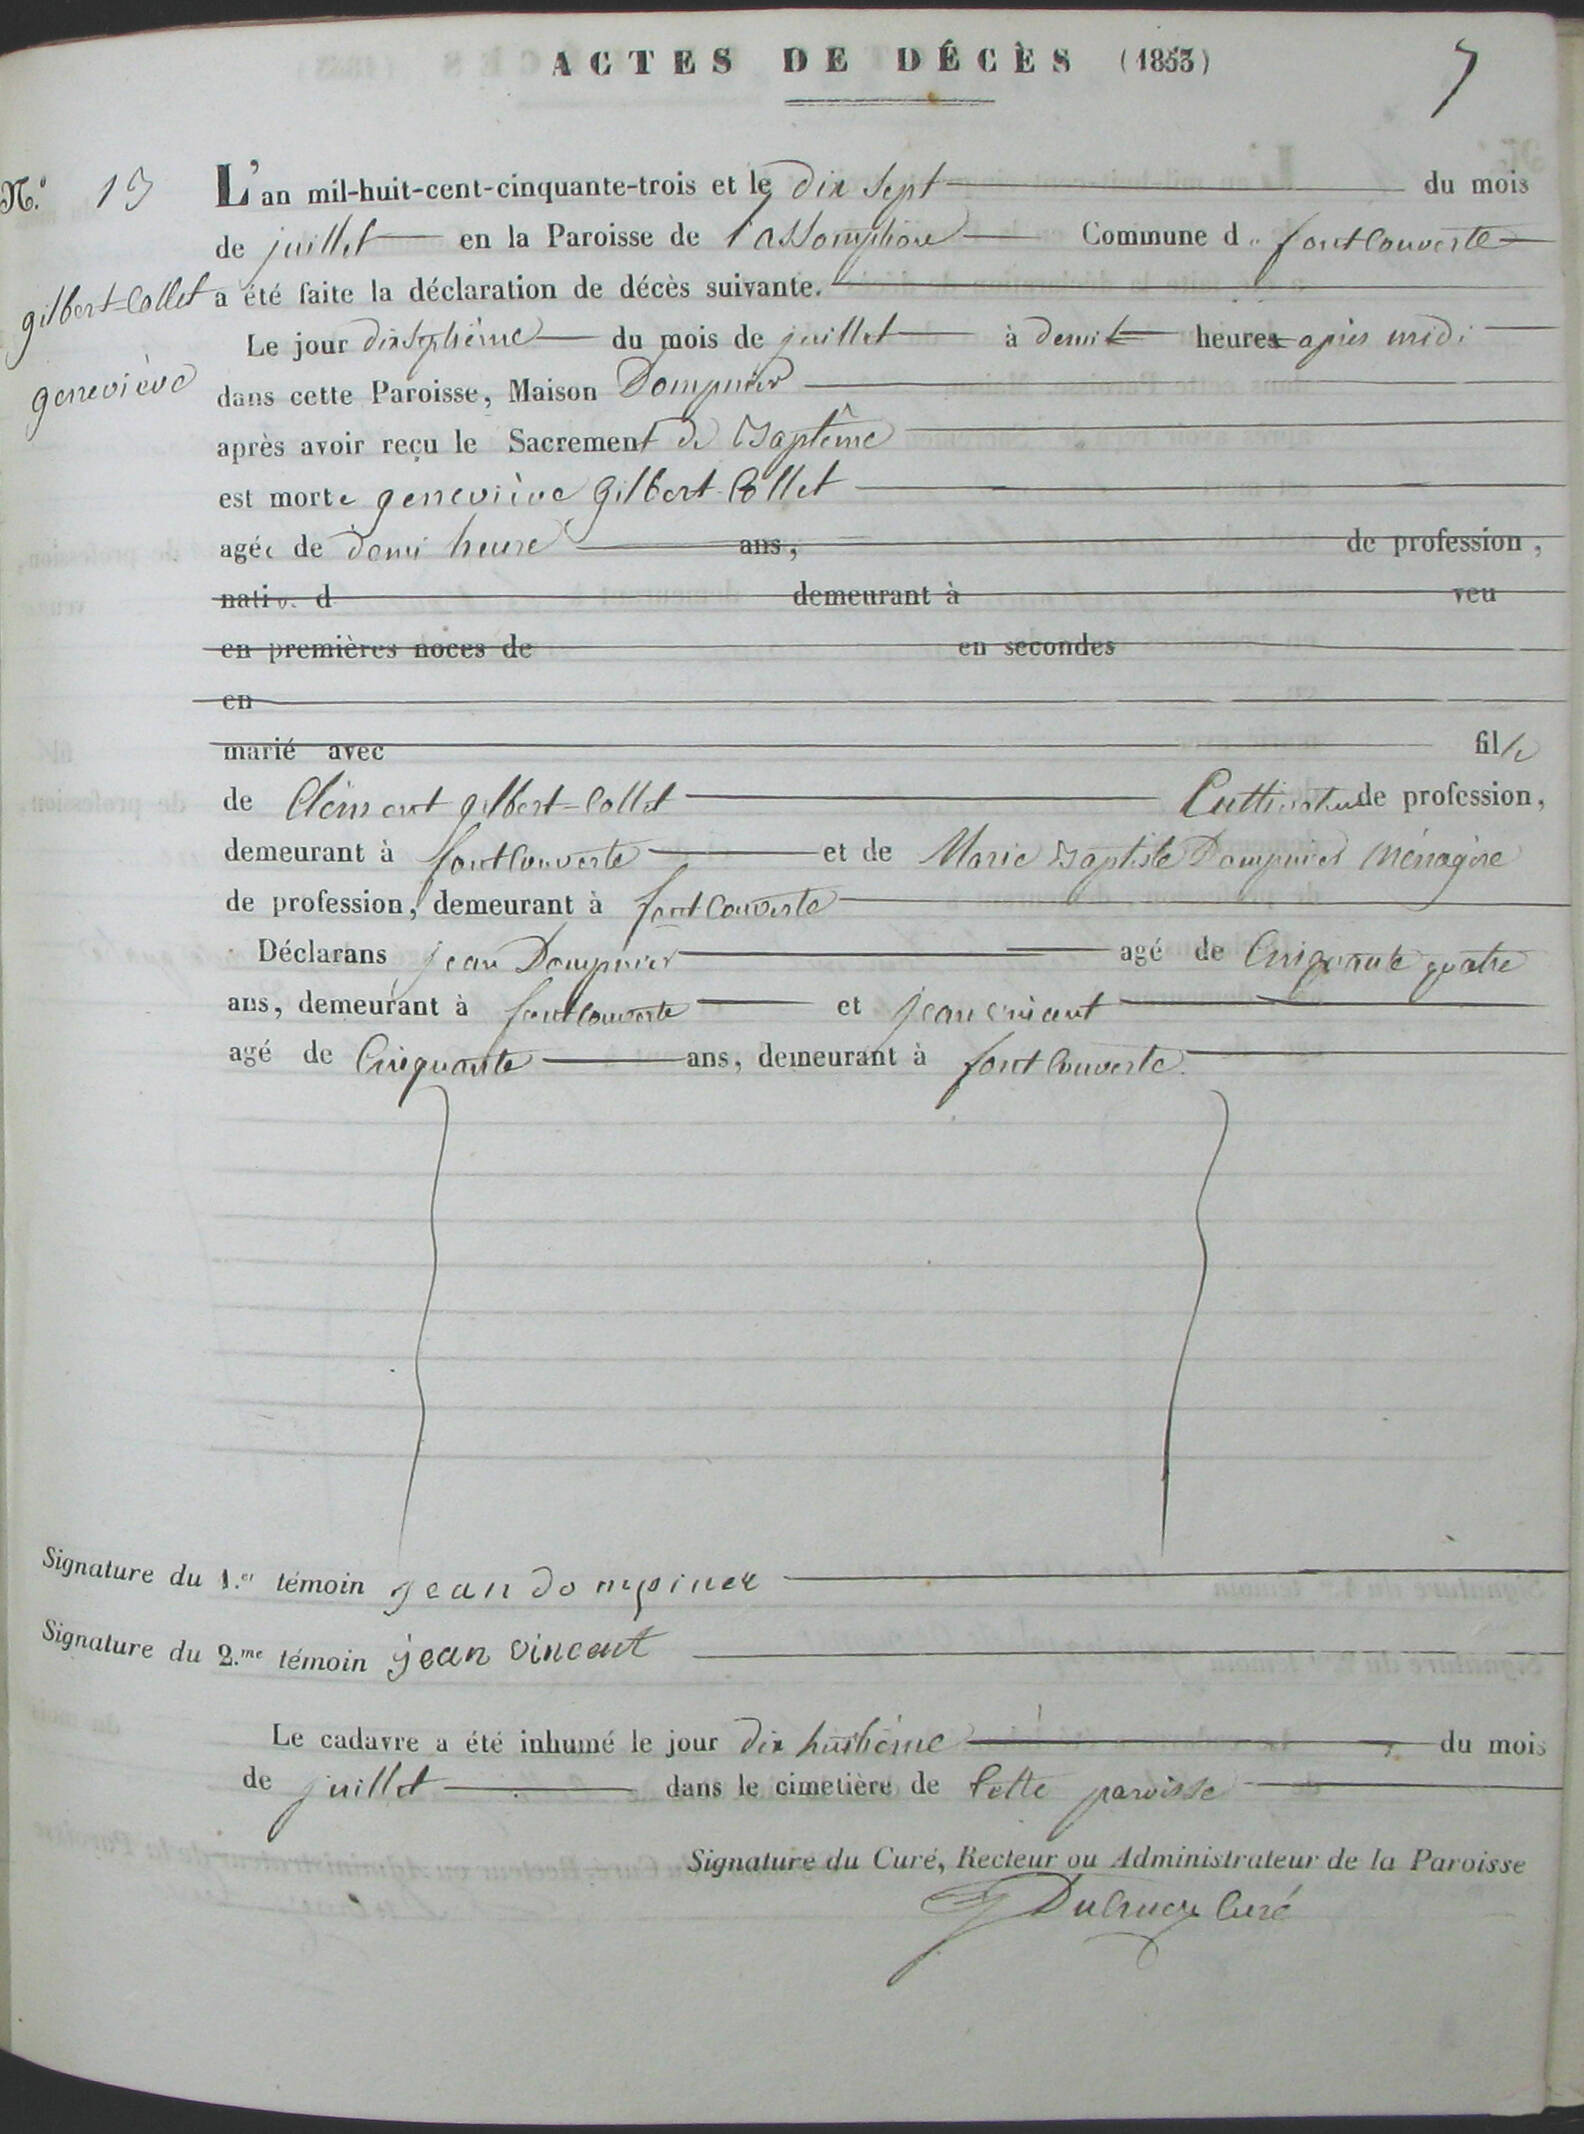 ACTES DE DÉCÈS (1853) 7
N.º 13 L'an mil-huit-cent-cinquante-trois et le dix sept du mois
de juillet en la Paroisse de l'assomption Commune de fontcouverte
gilbert-Collet a été faite la déclaration de décès suivante.
Le jour dixseptième du mois de juillet à demi heures après midi
geneviève dans cette Paroisse, Maison Dompnier
après avoir reçu le Sacrement de Baptême
est morte geneviève gilbert-Collet
agée de demi heure ans, de profession,
nativ. d demeurant à veu
en premières noces de en secondes
en
marié avec fille
de Clément gilbert-Collet Cultivateur de profession,
demeurant à fontcouverte et de Marie Baptiste Dompnier Ménagère
de profession, demeurant à fontcouverte
Déclarans jean Dompnier agé de Cinquante quatre
ans, demeurant à fontcouverte et jean vincent
agé de Cinquante ans, demeurant à fontcouverte.
Signature du 1.er témoin jean dompnier
Signature du 2.me témoin jean vincent
Le cadavre a été inhumé le jour dix huitième du mois
de juillet dans le cimetière de Cette paroisse
Signature du Curé, Recteur ou Administrateur de la Paroisse
Ducruey Curé